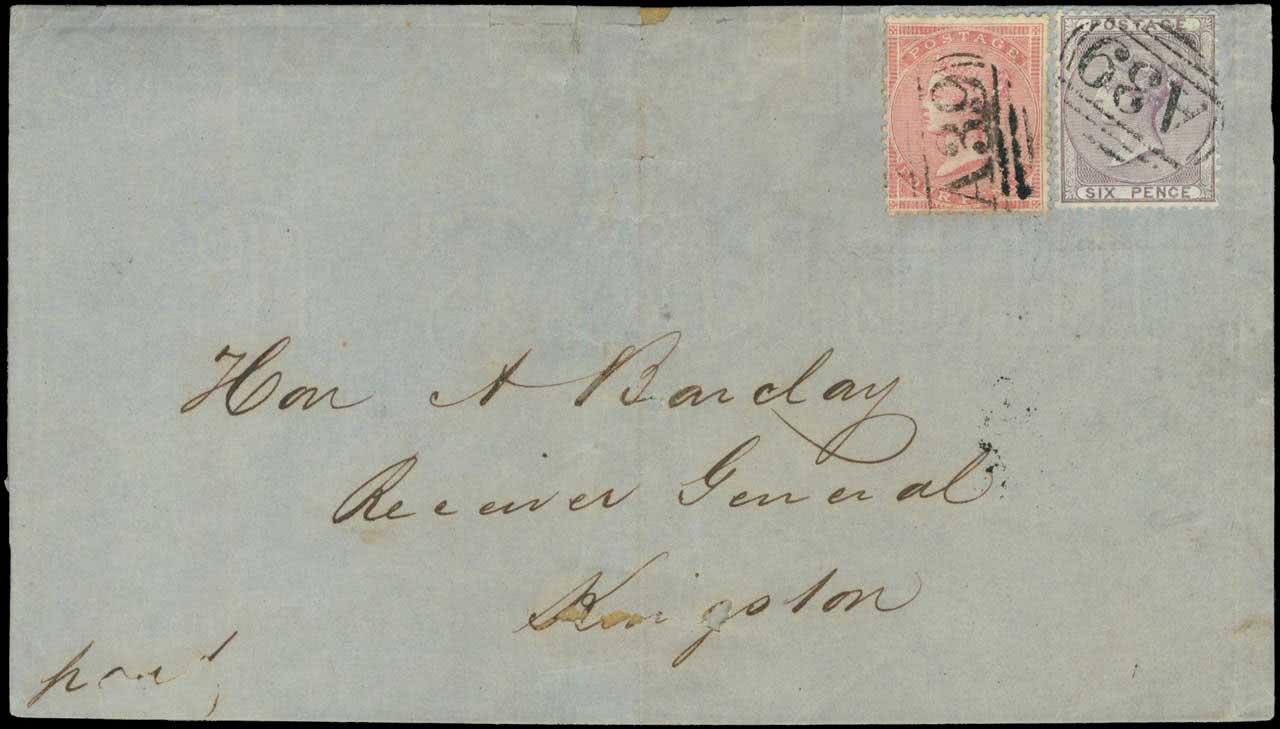 POSTAGE
A39
POSTAGE
A39
SIX PENCE
Hon A Barclay
Receiver General
Kingston